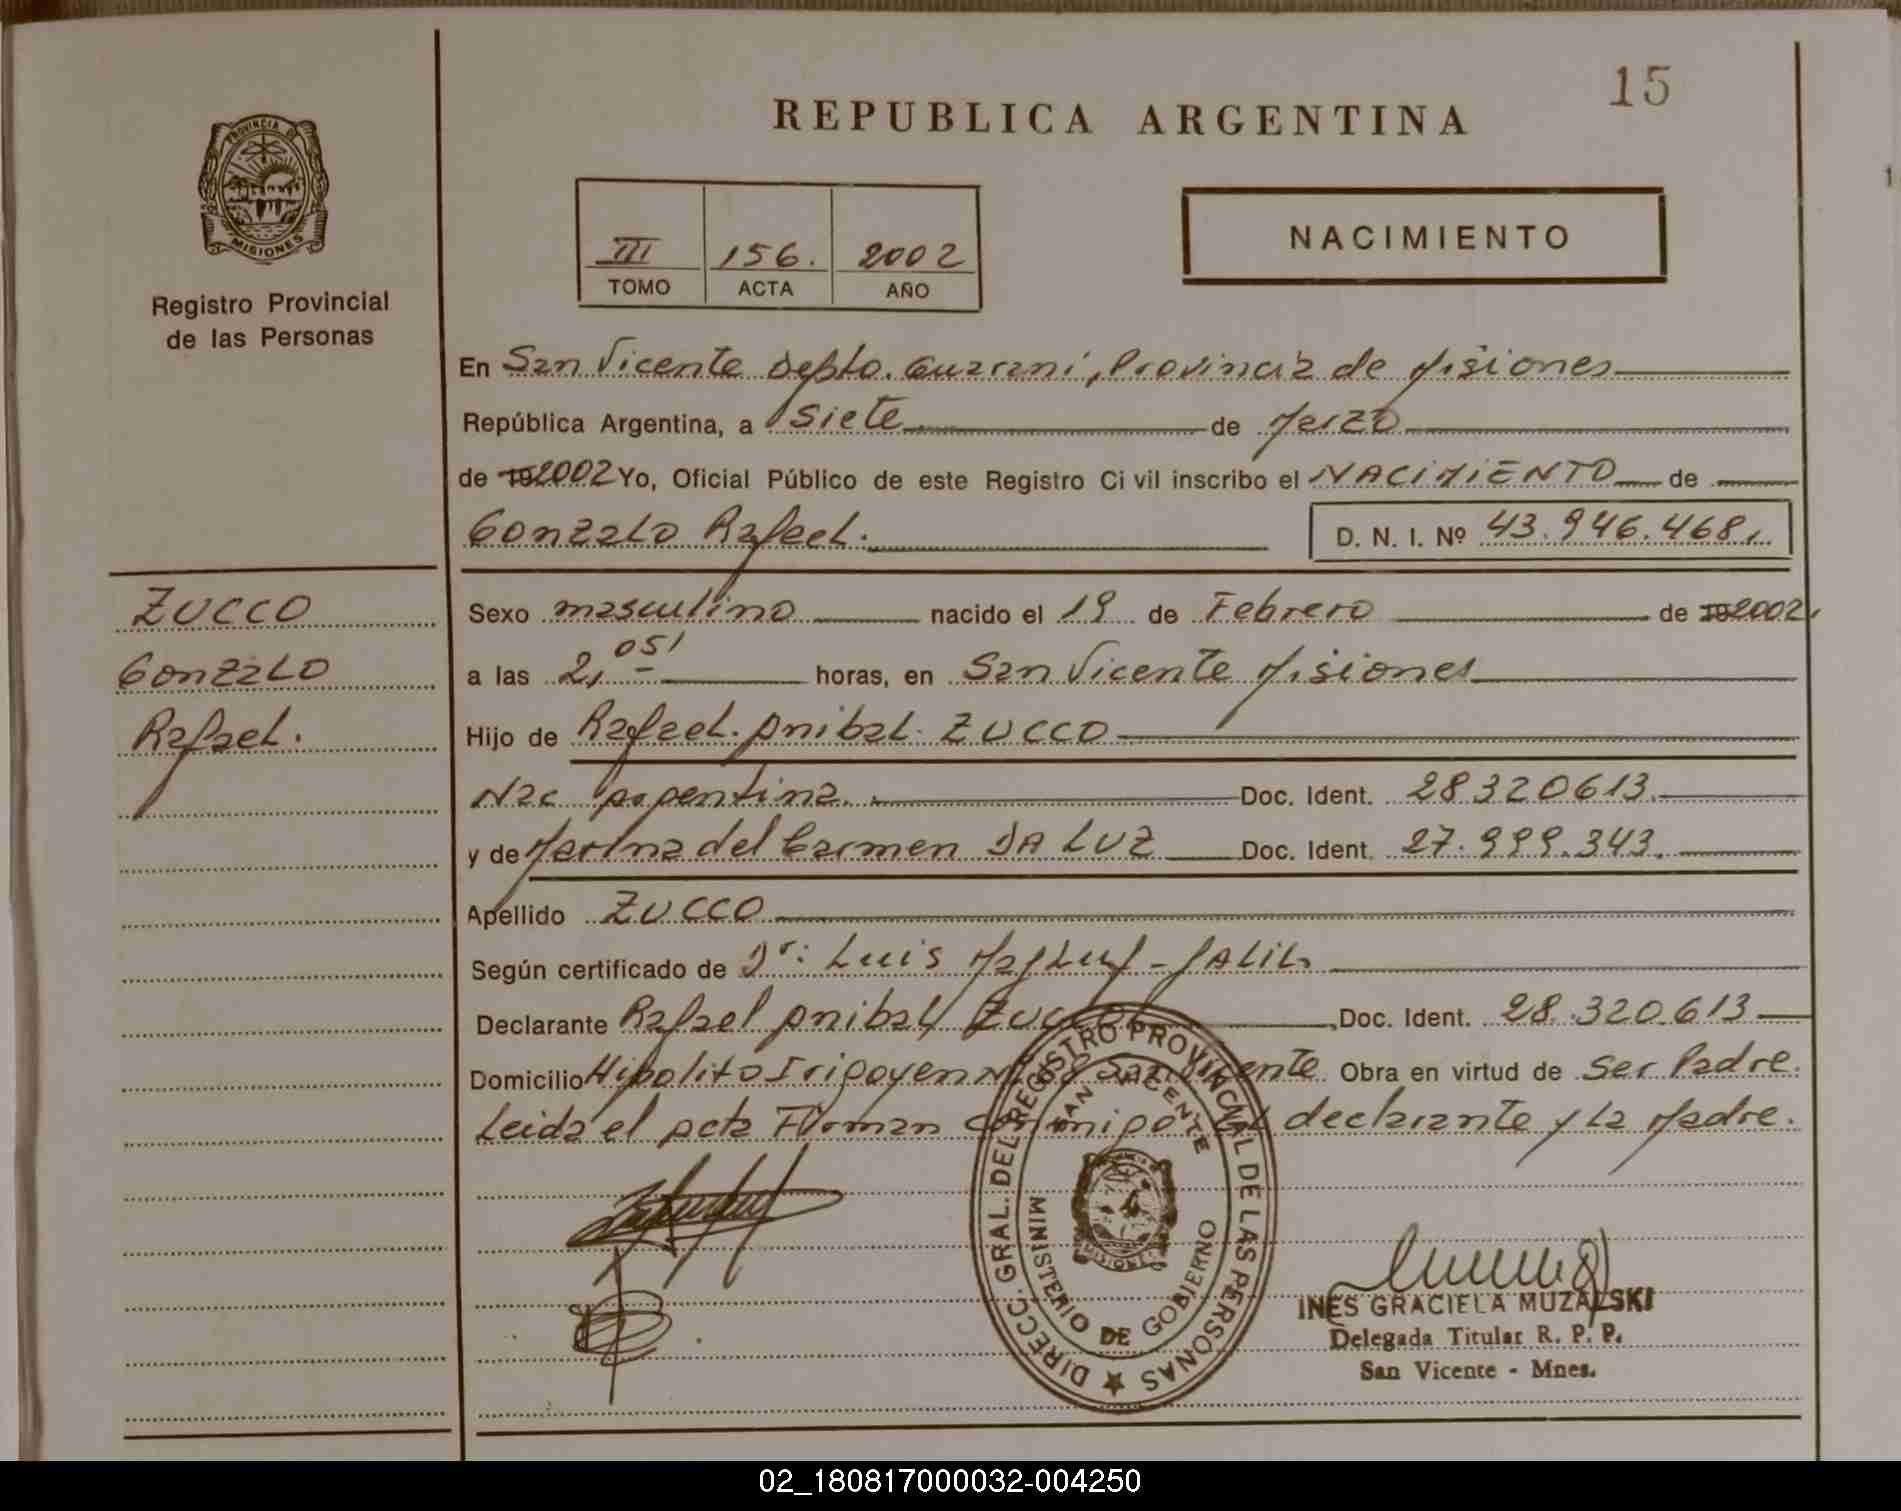 15
REPUBLICA ARGENTINA
PROVINCIA DE
MISIONES
Registro Provincial
de las Personas
III 156. 2002
TOMO ACTA AÑO
NACIMIENTO
En San Vicente Depto. Guaraní, Provincia de Misiones
República Argentina, a Siete de Marzo
de 192002 Yo, Oficial Público de este Registro Ci vil inscribo el NACIMIENTO de
Gonzalo Rafael.
D. N. I. Nº 43.946.468.
ZUCCO
Gonzalo
Rafael.
Sexo masculino nacido el 19 de Febrero de 192002.
a las 2,05' horas, en San Vicente Misiones
Hijo de Rafael Anibal ZUCCO
Nac Argentina. Doc. Ident. 28320613.
y de Marina del Carmen DA LUZ Doc. Ident. 27.999.343.
Apellido ZUCCO
Según certificado de Dr: Luis JALIL
Declarante Rafael Anibal Zucco Doc. Ident. 28.320.613
Domicilio Hipolito Irigoyen San Vicente Obra en virtud de Ser Padre.
Leida el acta Firman conmigo el declarante y La Madre.
DIRECC. GRAL. DEL REGISTRO PROVINCIAL DE LAS PERSONAS
SAN VICENTE
MISIONES
MINISTERIO DE GOBIERNO
INES GRACIELA MUZALSKI
Delegada Titular R. P. P.
San Vicente - Mnes.
02_180817000032-004250